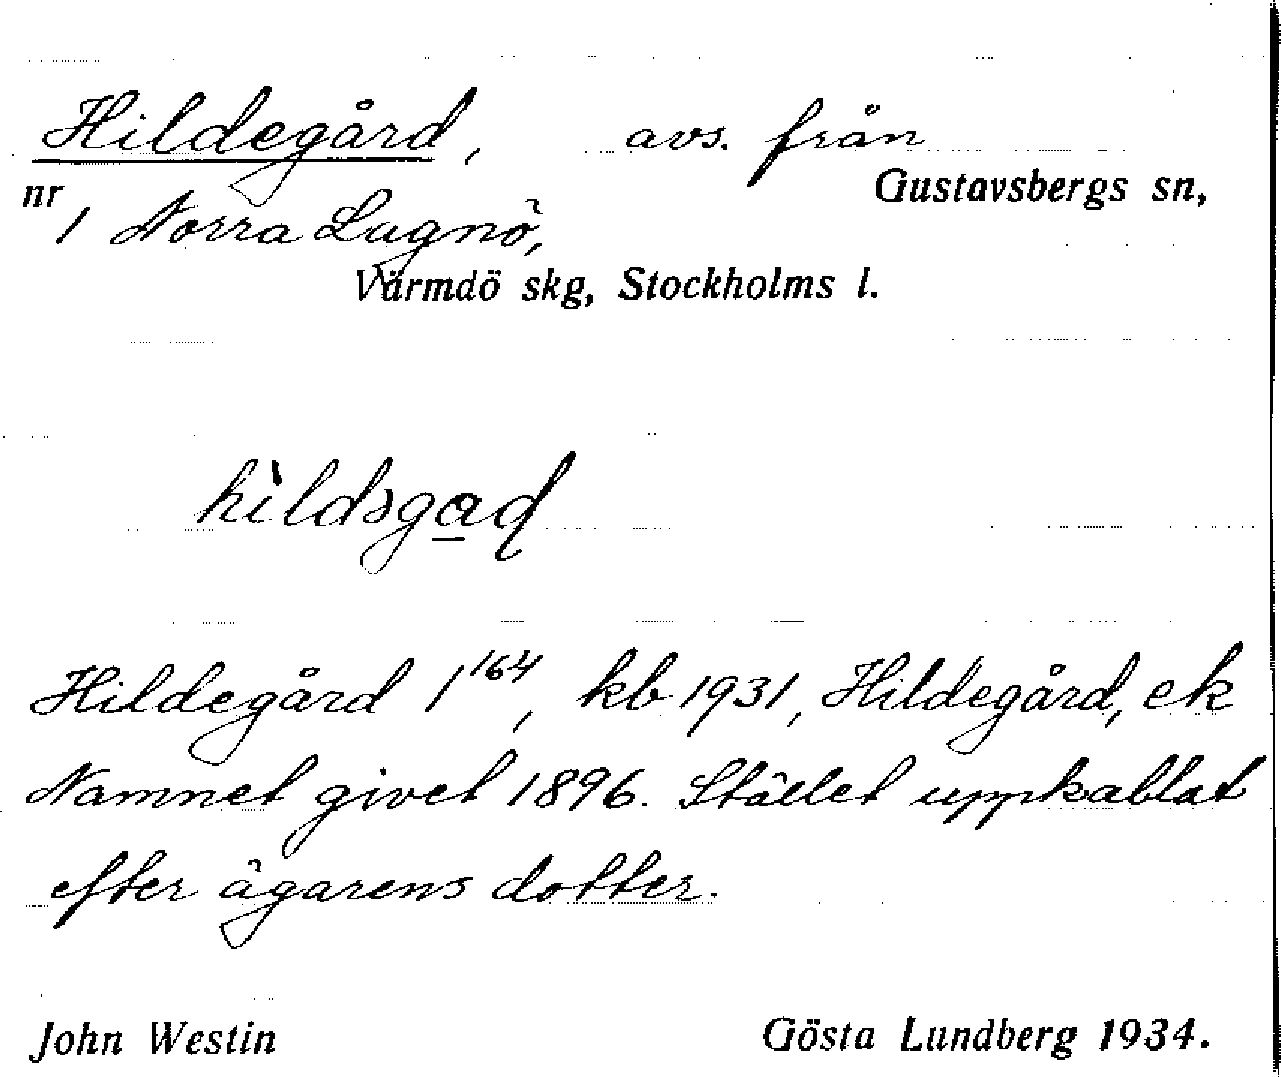 Hildegård, avs. från
Gustavsbergs sn,
nr 1 Norra Lagnö,
Värmdö skg, Stockholms l.
Hildegård 1¹⁶⁴, kb 1931, Hildegård, ek
Namnet givet 1896. Stället uppkallat
efter ägarens dotter.
John Westin Gösta Lundberg 1934.